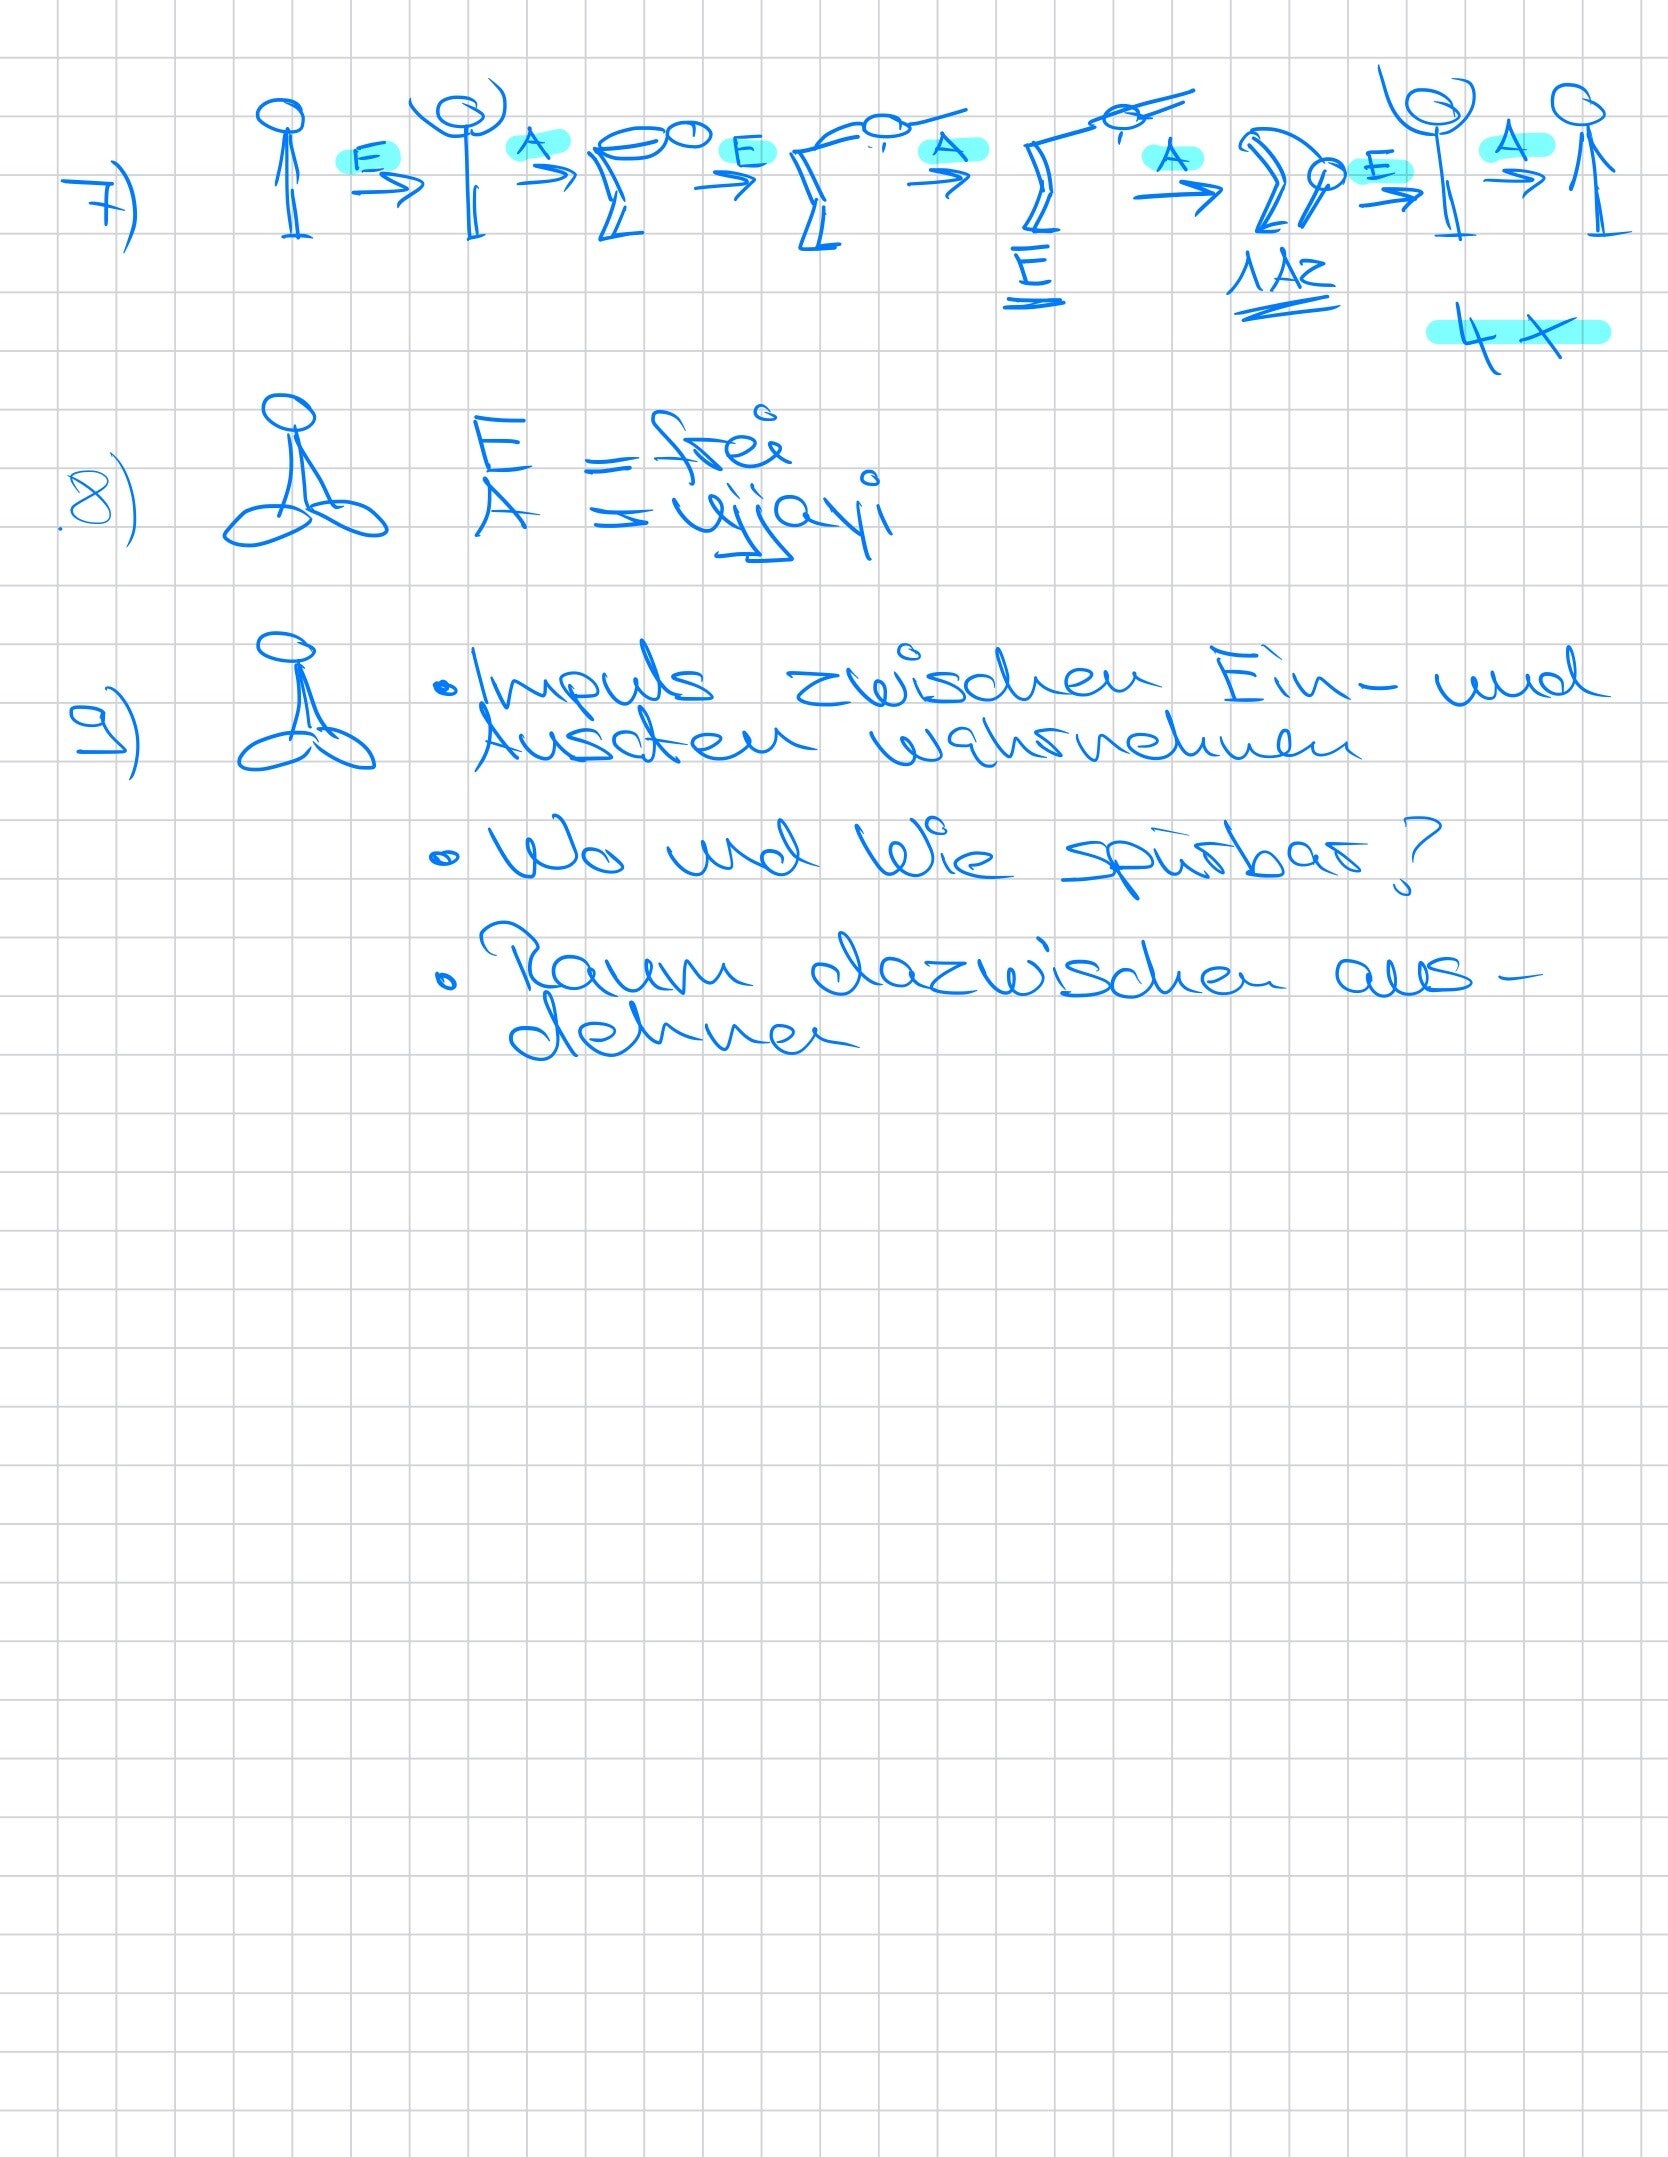 7) E A E A A E A
E 1 AZ
4 x
8) E = frei
A = ujjayi
9) • Impuls zwischen Ein- und
Ausatem wahrnehmen
• Wo und Wie spürbar?
• Raum dazwischen aus-
dehnen